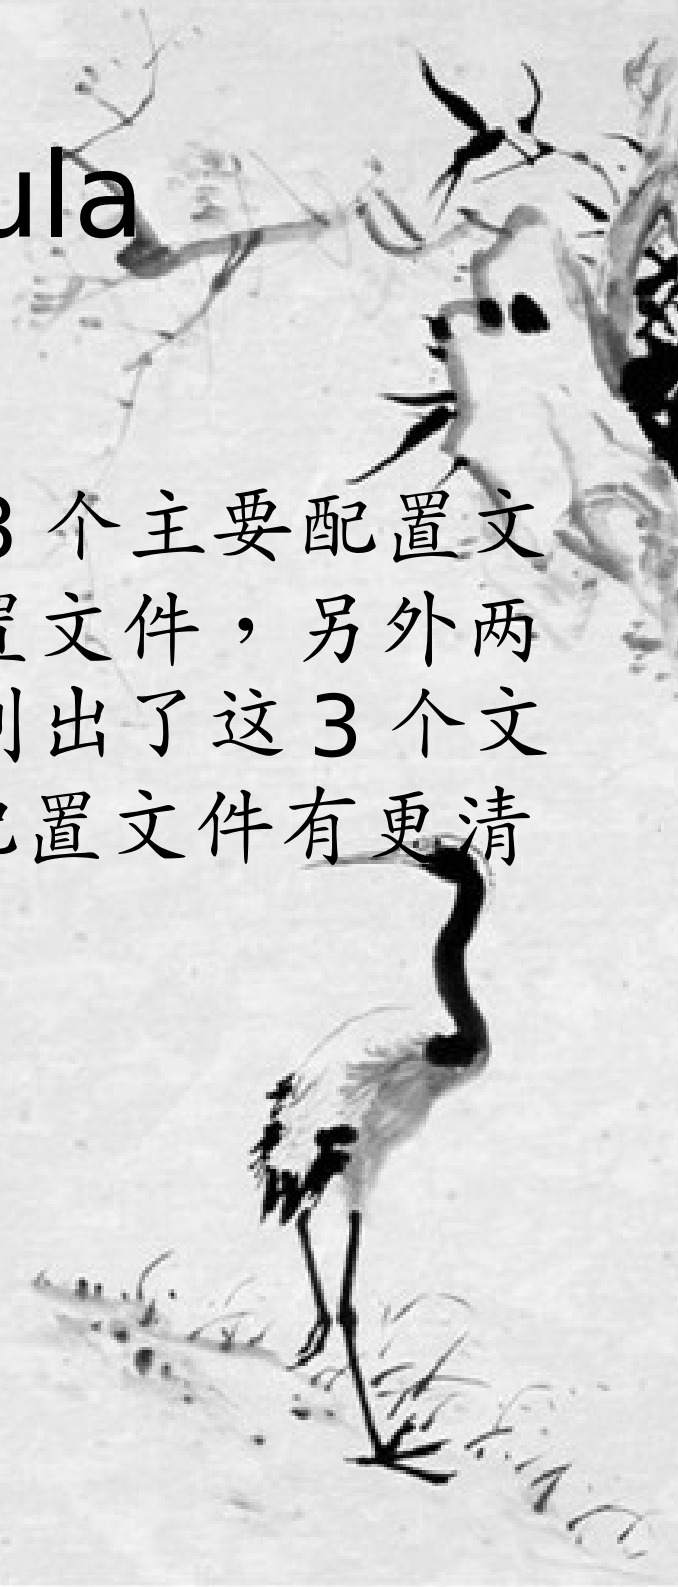 ula
3 个主要配置文
置文件，另外两
列出了这 3 个文
配置文件有更清